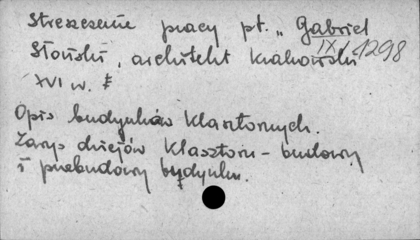 Streszczenie pracy pt. „Gabriel
Słoński, architekt krakowski
IX/1298
XVI w.
Opis budynków klasztornych.
Zarys dziejów klasztoru - budowy
i przebudowy budynku.